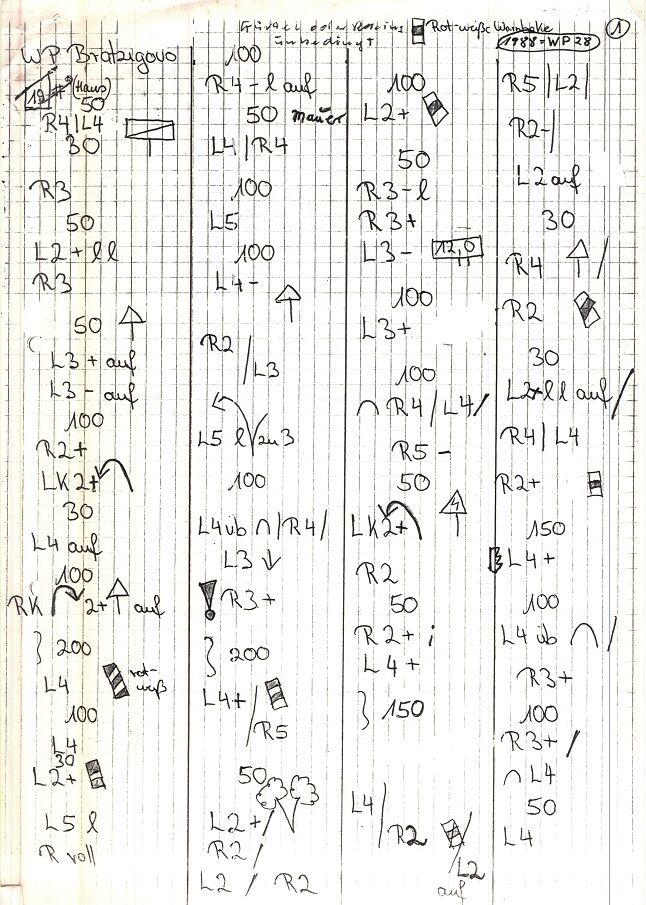 Rot-weiße Warnbake
unbedingt
1
1988 = WP 28
WP Bratzigovo
(Haus)
50
R4/L4
30
R3
50
L2+ll
R3
50
L3+ auf
L3- auf
100
R2+
LK2+
30
L4 auf
100
RK 2+ auf
} 200
L4 rot-
weiß
100
L4
30
L2+
L5 l
R voll
100
R4-l auf
50 Mauer
L4/R4
100
L5
100
L4-
R2
/L3
L5 l / zu 3
100
L4 üb ∩/R4/
L3 ↓
! R3+
} 200
L4+
/R5
50
L2+/
R2/
L2 / R2
100
L2+
50
R3-l
R3+
L3- 12,0
100
L3+
100
∩ R4/L4/
R5-
50
LK2+
R2
50
R2+ i
L4+
} 150
L4/
R2
/L2
auf
R5/L2/
R2-/
L2 auf
30
R4 /
R2
30
L2+ll auf /
R4/L4
R2+
150
L4+
100
L4 üb ∩/
R3+
100
R3+/
∩ L4
50
L4